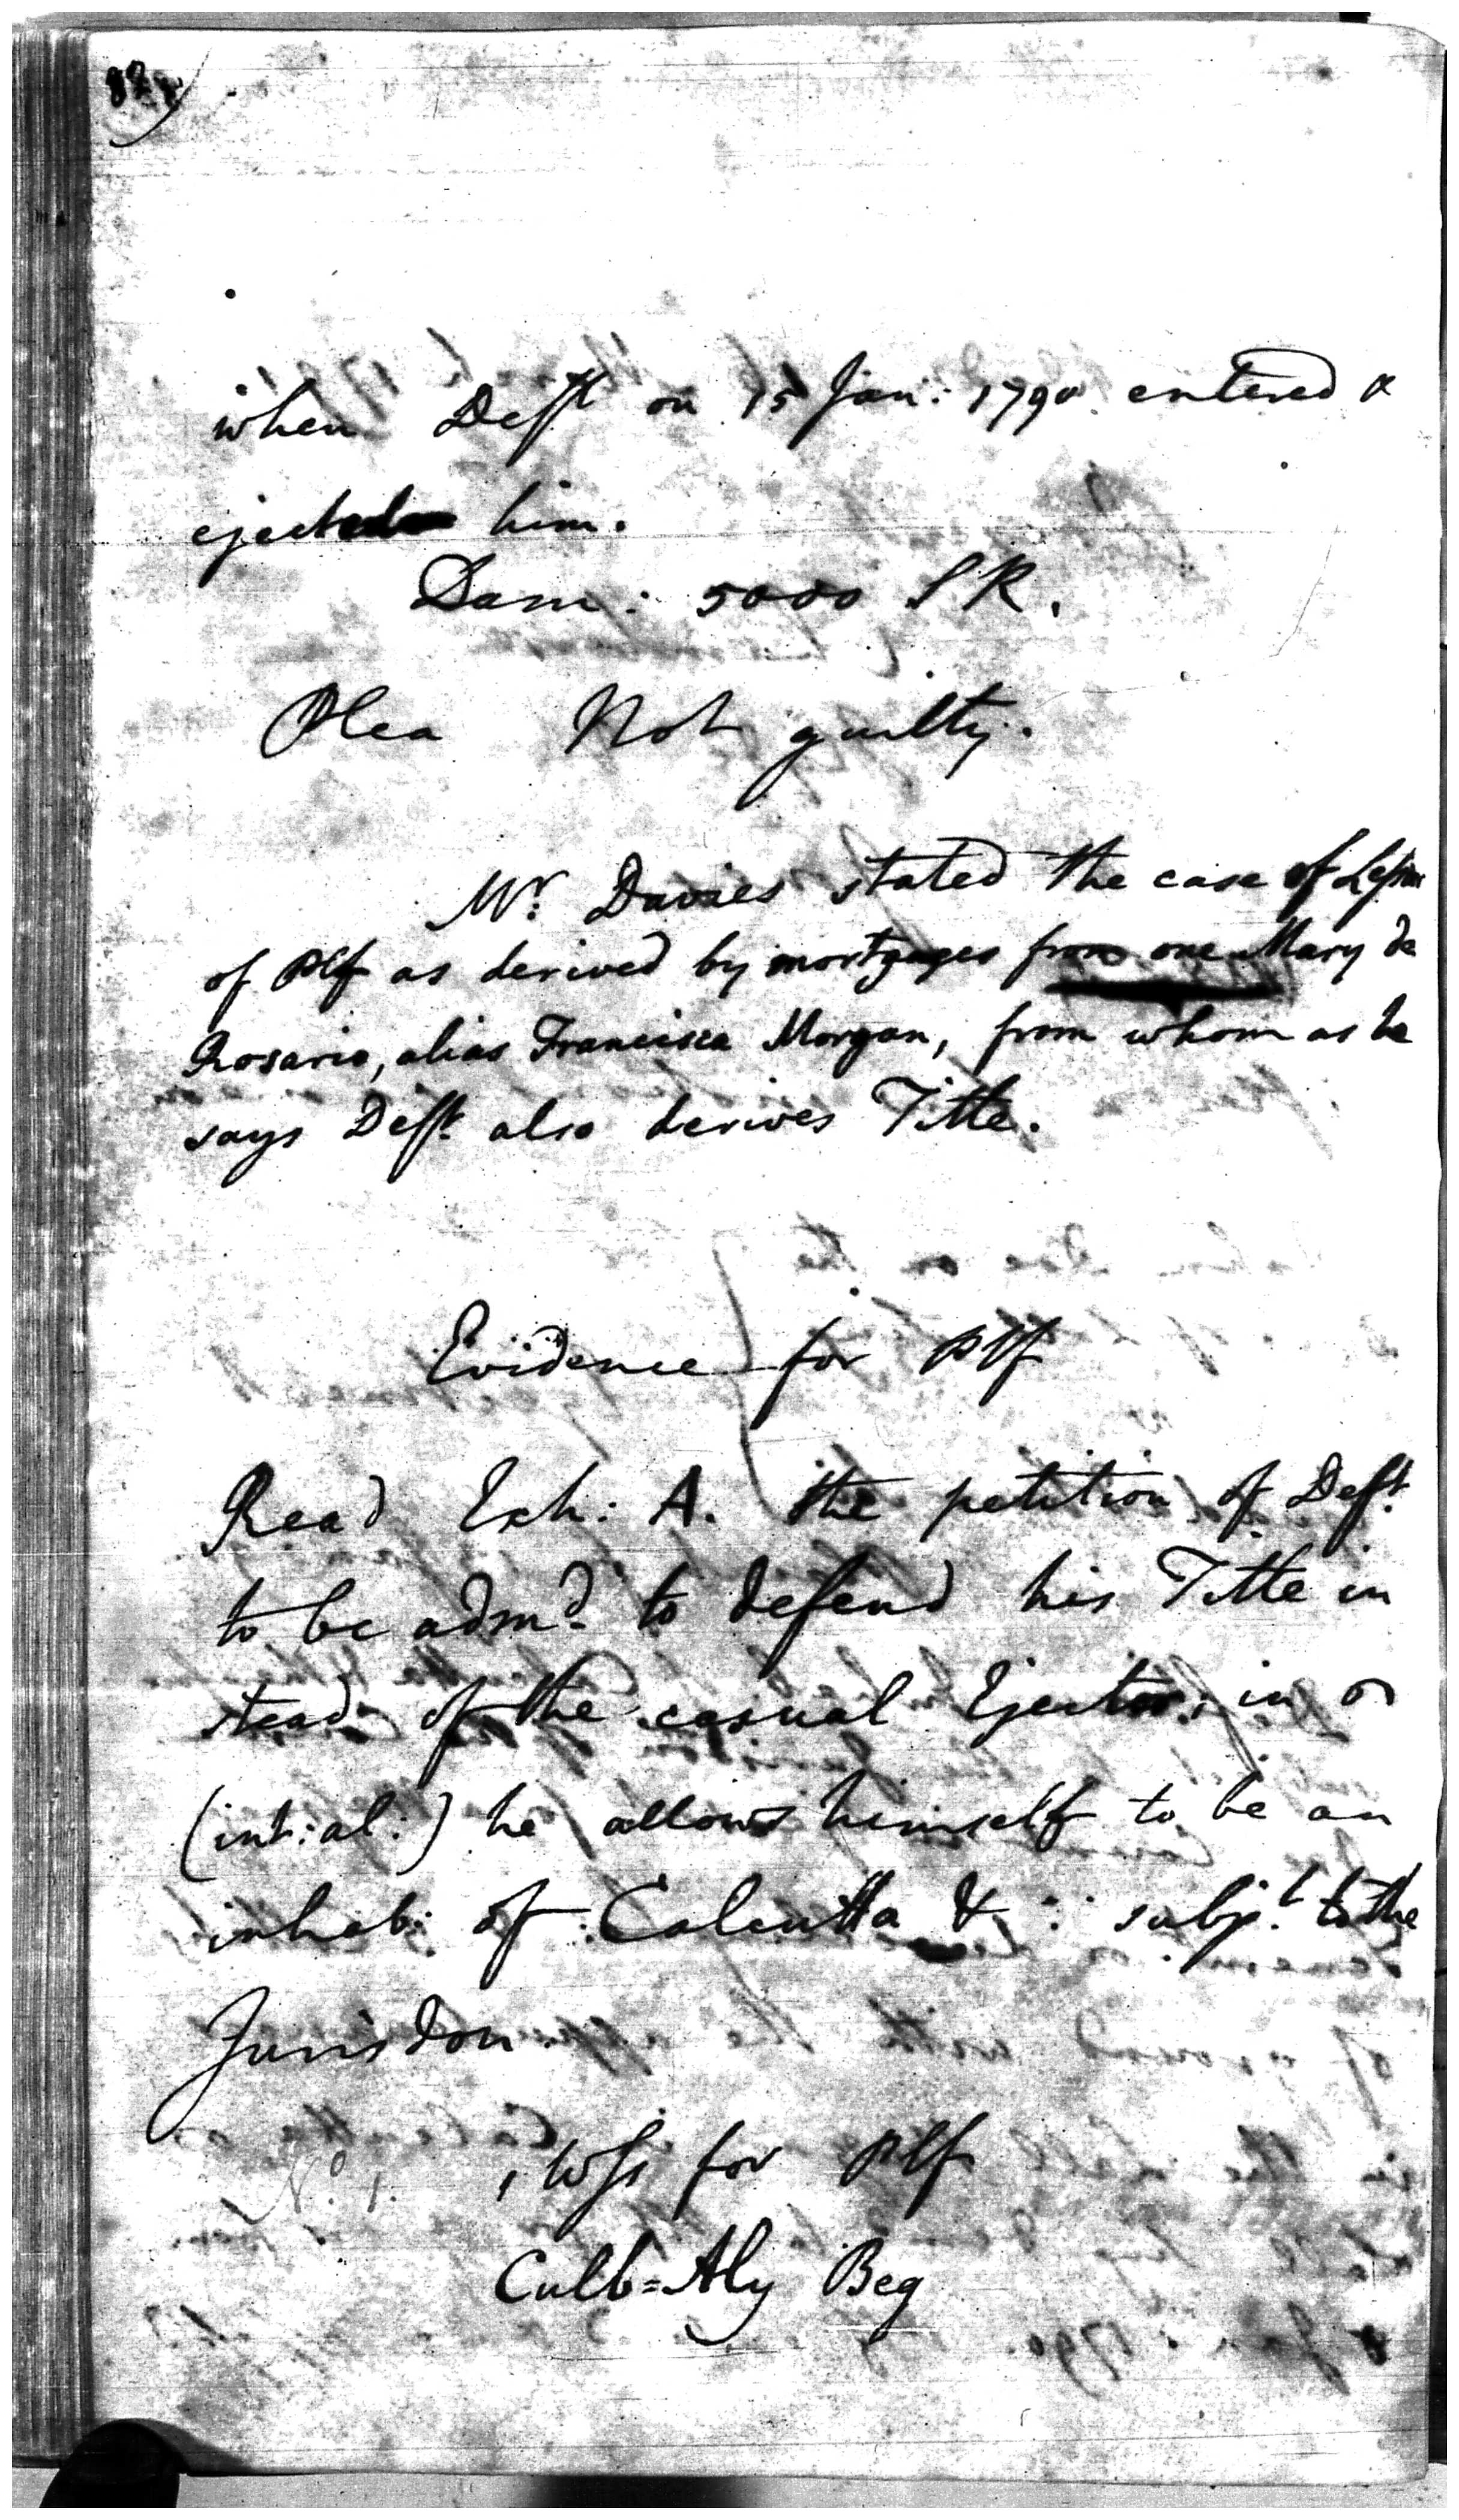 when Deft on 15 Jan: 1790 entered &
ejected him.
Dam: 5000 S R.
Plea Not guilty.
Mr. Davies stated the case of Lessor
of Plf as derived by mortgages from one Mary de
Rosario, alias Francisca Morgan, from whom as he
says Deft. also derives Title.
Evidence for Plf
Read Exh: A. the petition of Deft.
to be admd. to defend his Title in
stead of the casual Ejector; in
(int: al:) he allows himself to be an
inhab: of Calcutta & subjt. to the
Jurisdon
No. 1. 1 Wss for Plf
Culb=Aly Beg